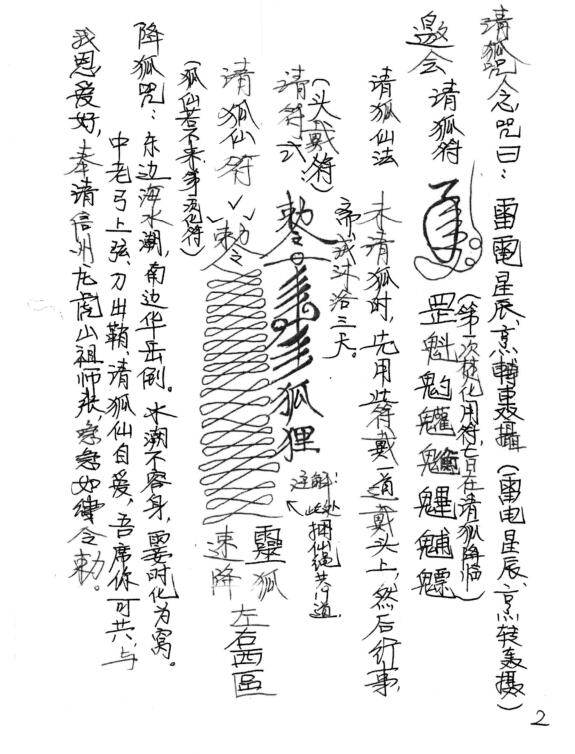 请狐咒念咒曰：雷電星辰、烹轉轟攝（雷电星辰、烹转轰摄）
（第一次焚化用符，旨在请狐降临）
邀会 请狐符 罡魁
请狐仙法 未请狐时，先用此符戴一道戴头上，然后行事，
斋戒沐浴三天。
（头戴符）
请符式 敕令 狐狸
注解：此处捆仙绳共 道
请狐仙符 敕令 靈狐速降 左右西區
（狐仙若不来，再 化符）
降狐咒：东边海水潮，南边华岳倒。水潮不容身，霎时化为窝。
中老弓上弦、刀出鞘、请狐仙自爱，吾席你可共，与
我恩爱好，奉请信州龙虎山祖师张，急急如律令勅。
2